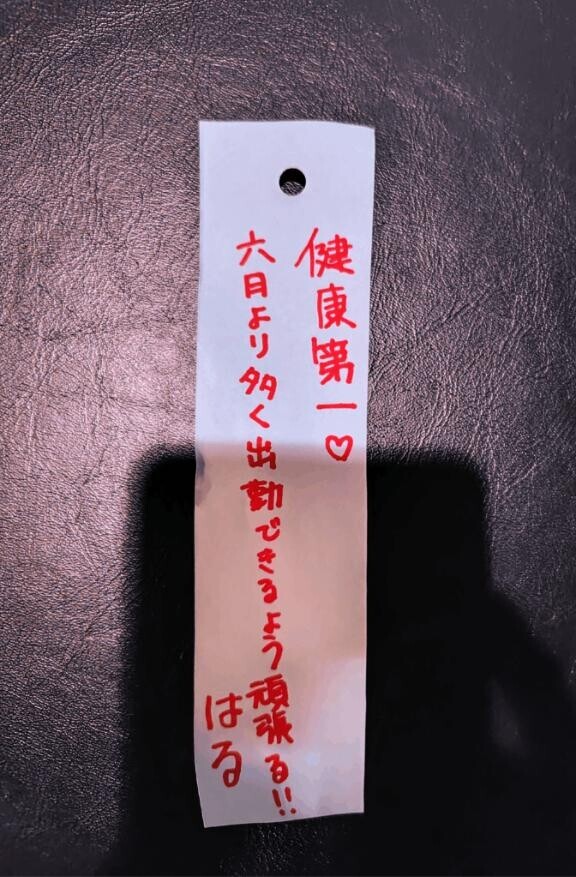 健康第一♡
六月より多く出勤できるよう頑張る!!
はる